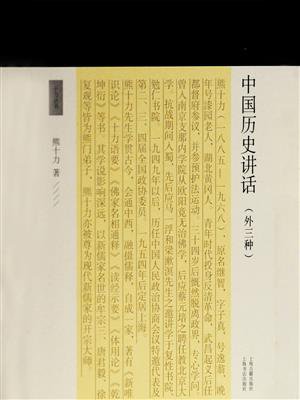 中国历史讲话
（外三种）
上海古籍出版社
上海书店出版社
熊十力（一八八五—一九六八），原名继智，字子真，号逸翁，晚
年号漆园老人，湖北黄冈人。青年时代投身反清革命，武昌起义后任
都督府参议，并参预护法运动。三十四岁后慨然脱离政界，专心问学。
曾入南京支那内学院从欧阳竟无治佛学，后应蔡元培之聘任教北京大
学。抗战期间入蜀，先后应马一浮和梁漱溟先生之邀讲学于复性书院、
勉仁书院。一九四九年以后，历任中国人民政治协商会议特邀代表及
第二、三、四届全国政协委员。一九五四年后定居上海。
熊十力先生学贯古今，会通中西，融儒释，自成一家。著有《新唯
识论》《十力语要》《佛家名相通释》《读经示要》《体用论》《乾
坤衍》等书，其学说影响深远，以新儒家名世的牟宗三、唐君毅、徐
复观等皆为熊门弟子，熊十力亦被尊为现代新儒家的开宗大师。
熊十力 著